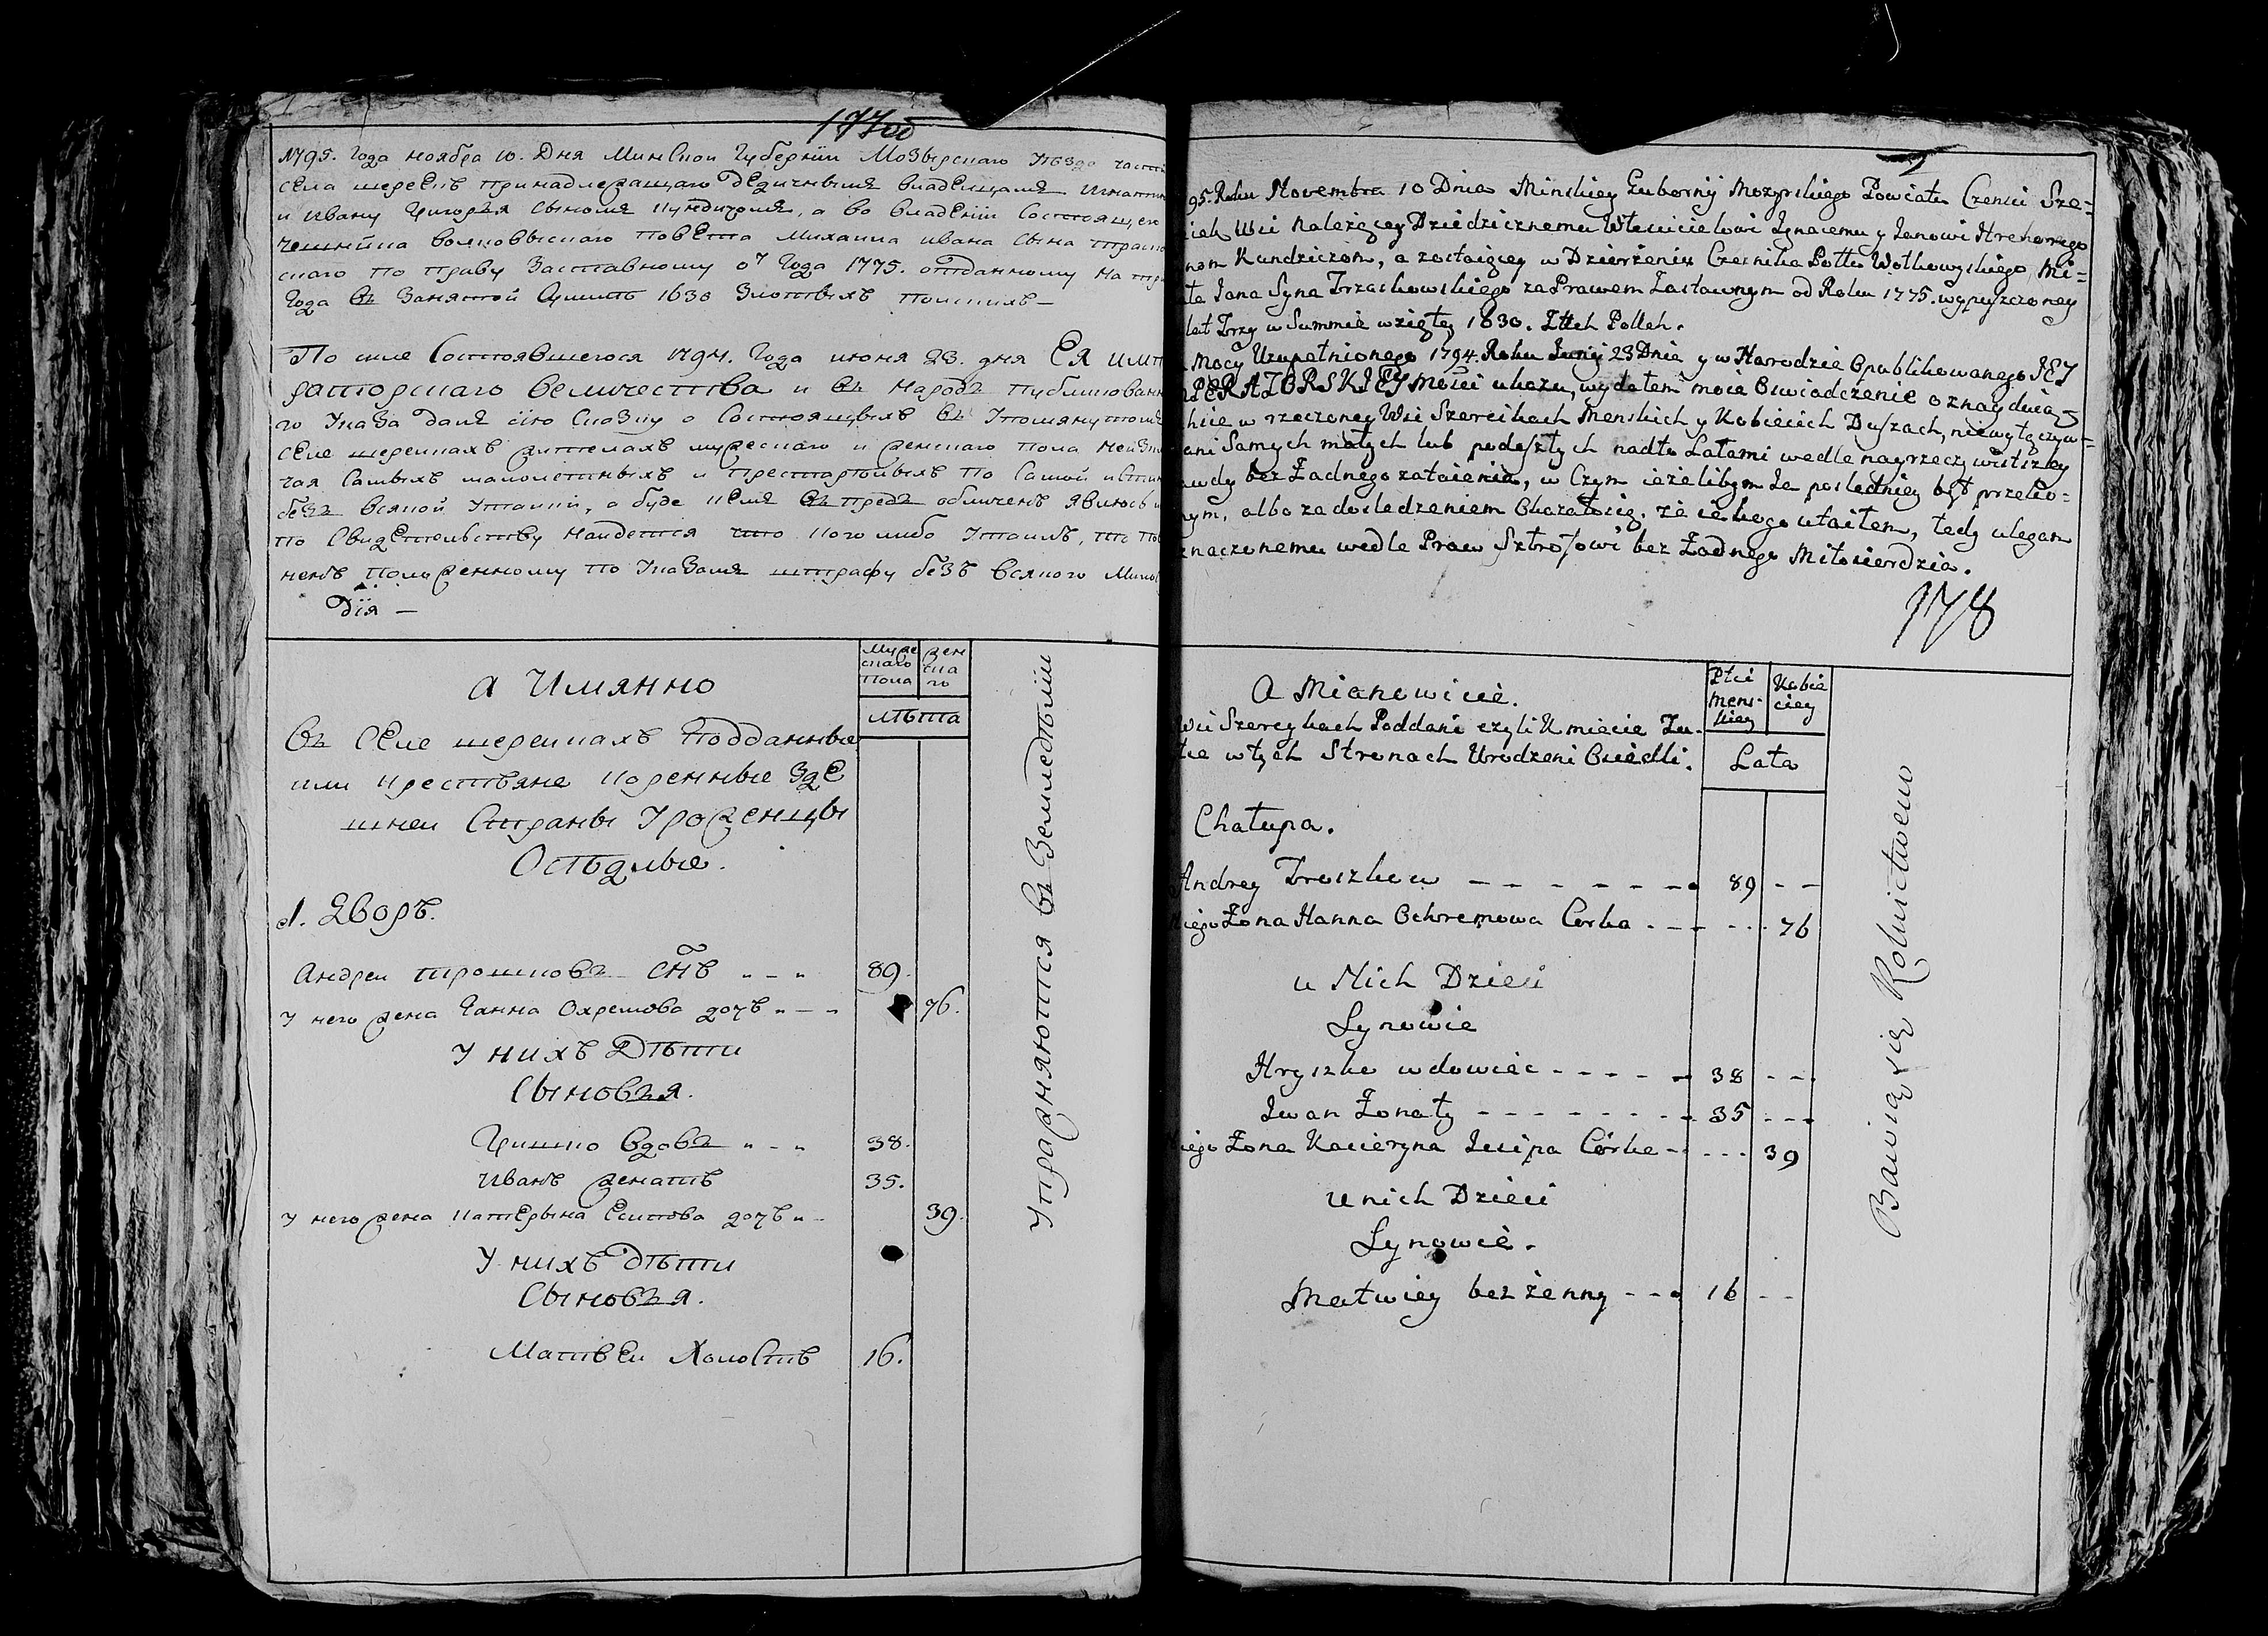 177об
1795. Года ноября 10. Дня Минской Губернїи Мозырского уезда части
села шереекъ принадлежащаго Дедичнымъ владельцамъ Игнатию
и Ивану Григорья сыномъ Кундичомъ, а во владенїи состоящего
чешника волковыского повета Михаила Ивана сына
скаго по праву заставному от Года 1775. отданному на
Года въ занятой сумме 1630 злотыхъ полскихъ —
По силе состоявшегося 1794. Года июня 23. дня ЕЯ ИМПЕ
раторскаго величества и въ народъ публикованна
го указа далъ сїю сказку о состоящыхъ въ упомянутомъ
селе шереикахъ жителахъ мужескаго и женскаго пола неизклю
чая самыхъ малолетныхъ и престарелыхъ по самой истине
безъ всякой утайки, а буде кемъ въ предъ обличенъ явлюсь и
по свидетельству найдется что кого либо утаилъ, то пов
ненъ положенному по указамъ штрафу безъ всякого мило
дїя —
а Имянно
муже
скаго
пола
жен
ска
го
лѣта
въ селе шереикахъ подданные
или крестьяне коренные зде
шней страны уроженцы
Оседлые.
1. Дворъ.
Андреи трошковъ снъ „ – „ 89.
у него жена Ганна Охремова дочь „ – „ 76.
у нихъ Дѣти
сыновъя.
Гришко вдовъ „ – „ 38.
Иванъ женатъ 35.
у него жена катерына Есипова дочь „ – 39.
у нихъ дѣти
сыновъя.
Матвеи холостъ 16.
Упражняются въ Земледѣлїи
95. Roku Novembra 10 Dnia Minskiey Gubernij Mozyrskiego Powiatu Czensci Sze=
iek Wsi należącey Dziedzicznemu Właścicielowi Ignacemu y Janowi Hrehorego
nom Kundziczom, a zostaiącey w Dzierżeniu Czesnika Pottu Wołkowyskiego, Mi=
ła Jana Syna Trzaskowskiego za Prawem Zastawnym od Roku 1775. wypuszczoney
lat Trzy w Summie wziętey 1630. Złłch Pollch.
Mocy Uzupełnionego 1794. Roku Junij 23 Dnia y w Narodzie Opublikowanego JEY
PERATORSKIEY Mości ukazu, wydałem moie Oswiadczenie o znayduią
hcie w rzeczoney Wsi Szereikach Menskich y Kobiecich Duszach, niewyłączyw=
ani Samych małych lub podeszłych nadto Latami wedle nayrzeczywistszey
awdy bez Żadnego zataienia, w Czym ieżelibym Ja posledniey był przeko=
nym, albo za dosledzeniem Okazałosię, że ia kogo utaiłem, tedy ulegam
znaczonemu wedle Praw Sztrofowi bez Żadnego Miłosierdzia.
178
A Mianowicie.
Płci
mens-
kiey
Kobie
ciey
Lata
Wsi Szereykach Poddani czyli Kmiecie Tu-
tie w tych Stronach Urodzeni Osiedli.
Chałupa.
Andrey Troszkow – – – – – – – 89 – –
niego Żona Hanna Ochremowa Corka . – – – . . 76
u Nich Dzieci
Synowie
Hryszko wdowiec – – – – – 38 – –.
Iwan Żonaty – – – – – – – 35 – – –
niego Żona Kacieryna Jesipa Córka – – . . . 39
u nich Dzieci
Synowie.
Matwiey bezżenny – – – 16 – –
Bawią się Rolnictwem